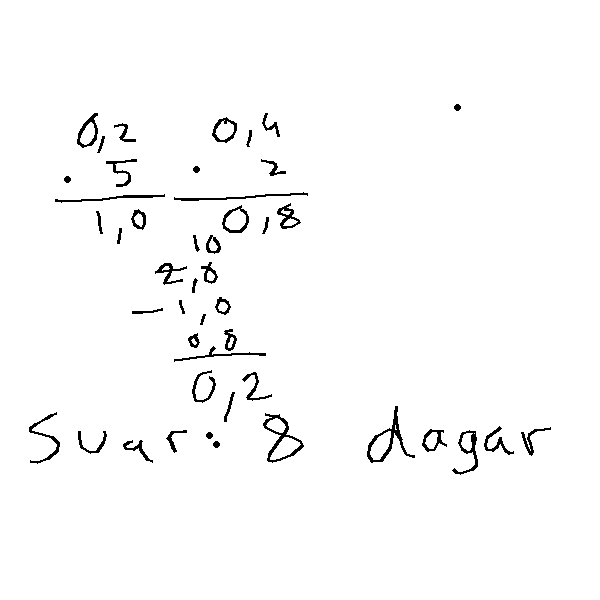 0,2 0,4
· 5 · 2
1,0 0,8
10
2,0
- 1,0
0,8
0,2
Svar: 8 dagar